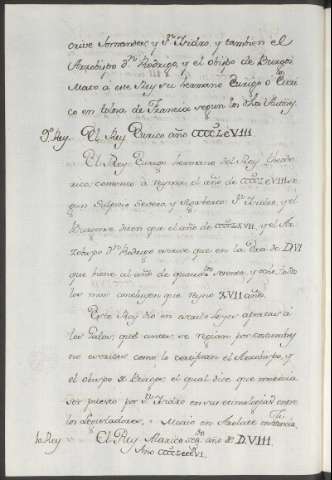 crive Hernandez, y Sn. Isidro, y tambien el
Arzobispo Dn. Rodrigo, y el obispo de Burgos
Mato a este Rey su hermano Eurigo ò Euri
co en tolosa de Francia segun los dhos Autores.
9o. Rey. El Rey Eurico año CCCCLXVIII.
El Rey Eurigo hermano del Rey theodo
rico comenzo à reynar el año de CCCCLXVIII se
gun Sulpicio Severo y Sn. Isidro, y el
Burgense dicen que el año de CCCCLXVII, y el Ar
zobispo Dn. Rodrigo escrive que en la Era de DVI
que tiene al año de quatrocientos sesenta, y ocho, todos
los mas concluyen que reyno XVII años.
Este Rey dio en escrito leyes apartar à
los Godos, que antes se regian por costumbres
no escritas como lo certifican el Arzobispo, y
el obispo de Burgos, el qual dice que merecia
ser puesto por Sn. Isidro en sus etimologias entre
los Legisladores. Murio en Arelate
10. Rey El Rey Alarico segdo. año de D.VIII.
Año